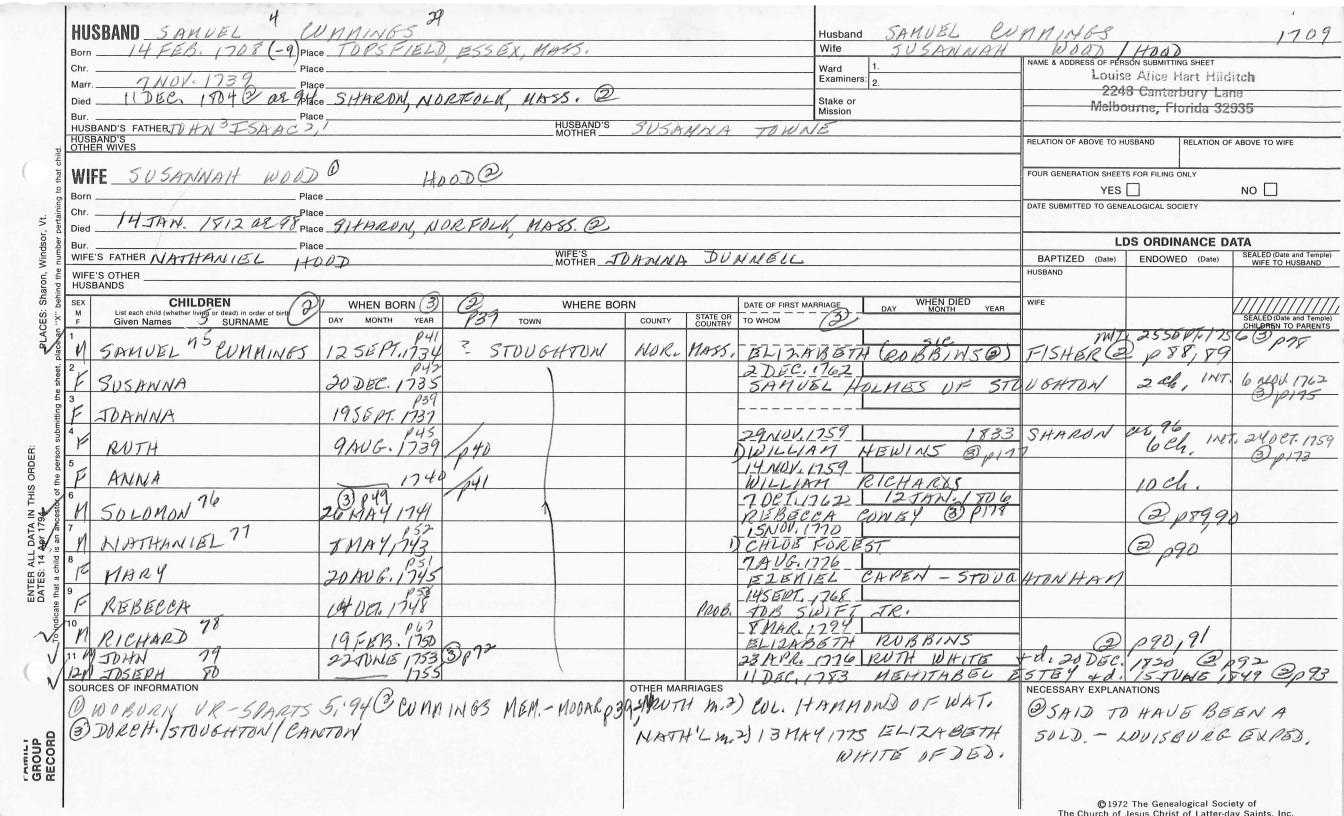 HUSBAND SAMUEL 4 CUMMINGS 29
Born 14 FEB. 1708 (-9) Place TOPSFIELD, ESSEX, MASS.
Chr. Place
Marr. 7 NOV. 1739 Place
Died 11 DEC. 1804 ② Place SHARON, NORFOLK, MASS. ②
Bur. Place
HUSBAND'S FATHER JOHN 3 ISAAC 2, 1 HUSBAND'S MOTHER SUSANNA TOWNE
HUSBAND'S OTHER WIVES
WIFE SUSANNAH WOOD ① HOOD ②
Born Place
Chr. Place
Died 14 JAN. 1812 ae 98 Place SHARON, NORFOLK, MASS. ②
Bur. Place
WIFE'S FATHER NATHANIEL HOOD WIFE'S MOTHER JOANNA DUNNELL
WIFE'S OTHER HUSBANDS
Husband SAMUEL CUMMINGS 1709
Wife SUSANNAH WOOD / HOOD
Ward 1.
Examiners: 2.
Stake or Mission
NAME & ADDRESS OF PERSON SUBMITTING SHEET
Louise Alice Hart Hilditch
2248 Canterbury Lane
Melbourne, Florida 32935
RELATION OF ABOVE TO HUSBAND RELATION OF ABOVE TO WIFE
FOUR GENERATION SHEETS FOR FILING ONLY
YES NO
DATE SUBMITTED TO GENEALOGICAL SOCIETY
LDS ORDINANCE DATA
BAPTIZED (Date) ENDOWED (Date) SEALED (Date and Temple) WIFE TO HUSBAND
HUSBAND
WIFE
SEALED (Date and Temple) CHILDREN TO PARENTS
SEX M F CHILDREN ② WHEN BORN ③ ② p39 WHERE BORN DATE OF FIRST MARRIAGE WHEN DIED
List each child (whether living or dead) in order of birth
Given Names 5 SURNAME DAY MONTH YEAR TOWN COUNTY STATE OR COUNTRY TO WHOM ② DAY MONTH YEAR
1 M SAMUEL 75 CUMMINGS 12 SEPT. 1734 p41 ? STOUGHTON NOR. MASS. ELIZABETH (ROBBINS ②) sic FISHER ② p88, 89 INT. 25 SEPT. 1756 ③ p78
2 F SUSANNA 20 DEC. 1735 p42 2 DEC. 1762 SAMUEL HOLMES OF STOUGHTON 2 ch, INT. 6 NOV 1762 ③ p175
3 F JOANNA 19 SEPT. 1737 p39
4 F RUTH 9 AUG. 1739 p45 /p40 29 NOV. 1759 1) WILLIAM HEWINS ③ p177 1833 SHARON ae 96 6 ch. INT. 24 OCT. 1759 ③ p173
5 F ANNA 1740 /p41 14 NOV. 1759 WILLIAM RICHARDS 10 ch.
6 M SOLOMON 76 26 MAY 1741 ③ p49 7 OCT. 1762 REBECCA CONEY ③ p178 12 JAN. 1806 ② p89,90
7 M NATHANIEL 77 8 MAY, 1743 p52 15 NOV. 1770 1) CHLOE FOREST ② p90
8 F MARY 20 AUG. 1745 p51 7 AUG. 1776 EZEKIEL CAPEN - STOUGHTONHAM
9 F REBECCA 14 OCT. 1748 p58 PROB. 14 SEPT. 1768 JOB SWIFT JR.
10 M RICHARD 78 19 FEB. 1750 p67 8 MAR. 1794 ELIZABETH ROBBINS ② p90, 91
11 M JOHN 79 22 JUNE 1753 ③ p72 23 APR. 1776 RUTH WHITE + d. 20 DEC. 1820 ② p92
12 M JOSEPH 80 1755 11 DEC. 1783 MEHITABEL ESTEY + d. 15 JUNE 1849 ② p93
SOURCES OF INFORMATION
① WOBURN VR - 3 PARTS ② CUMMINGS MEM. - MOOAR p39
③ DORCH./STOUGHTON/CANTON
OTHER MARRIAGES
RUTH m. 2) COL. HAMMOND OF WAT.
NATH'L m. 2) 13 MAY 1775 ELIZABETH
WHITE OF DED.
NECESSARY EXPLANATIONS
② SAID TO HAVE BEEN A
SOLD. - LOUISBURG EXPED.
©1972 The Genealogical Society of
The Church of Jesus Christ of Latter-day Saints, Inc.
FAMILY GROUP RECORD
ENTER ALL DATA IN THIS ORDER:
DATES: 14 Apr 1794
PLACES: Sharon, Windsor, Vt.
To indicate that a child is an ancestor of the person submitting the sheet, place an "X" behind the number pertaining to that child.